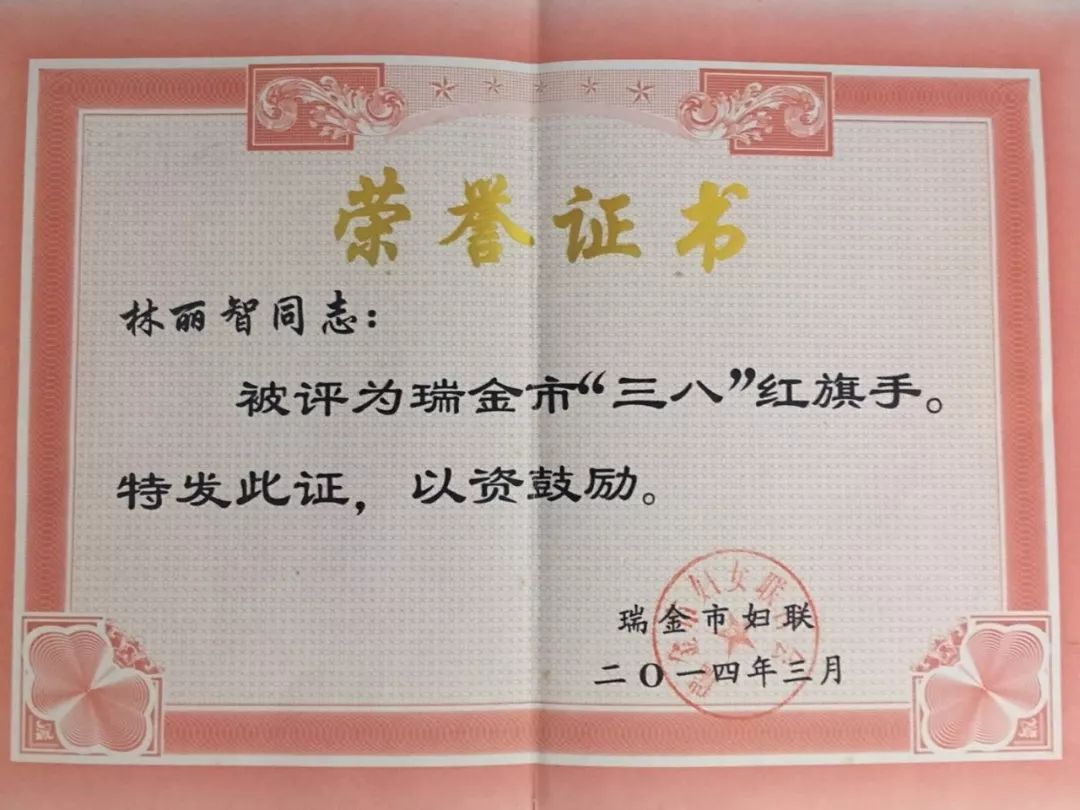 荣誉证书
林丽智同志：
被评为瑞金市“三八”红旗手。
特发此证，以资鼓励。
瑞金市妇联
二〇一四年三月